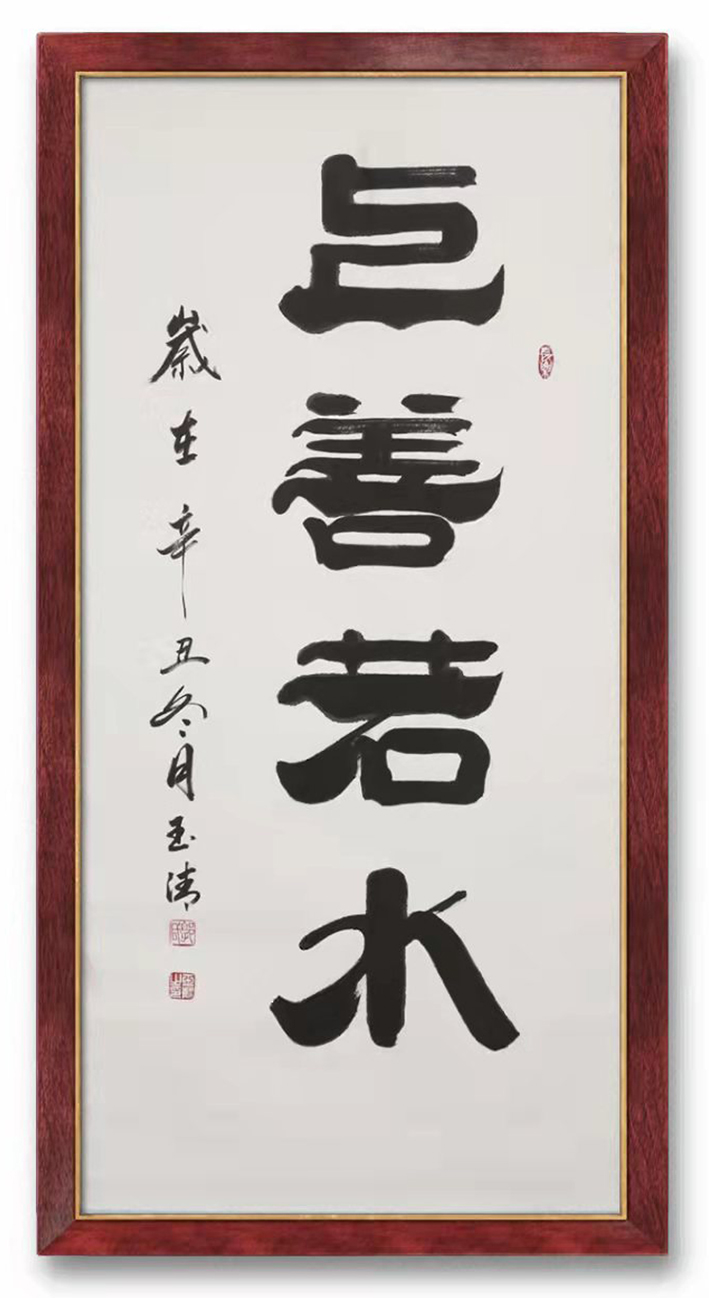 上善若水
歲在辛丑冬月玉清